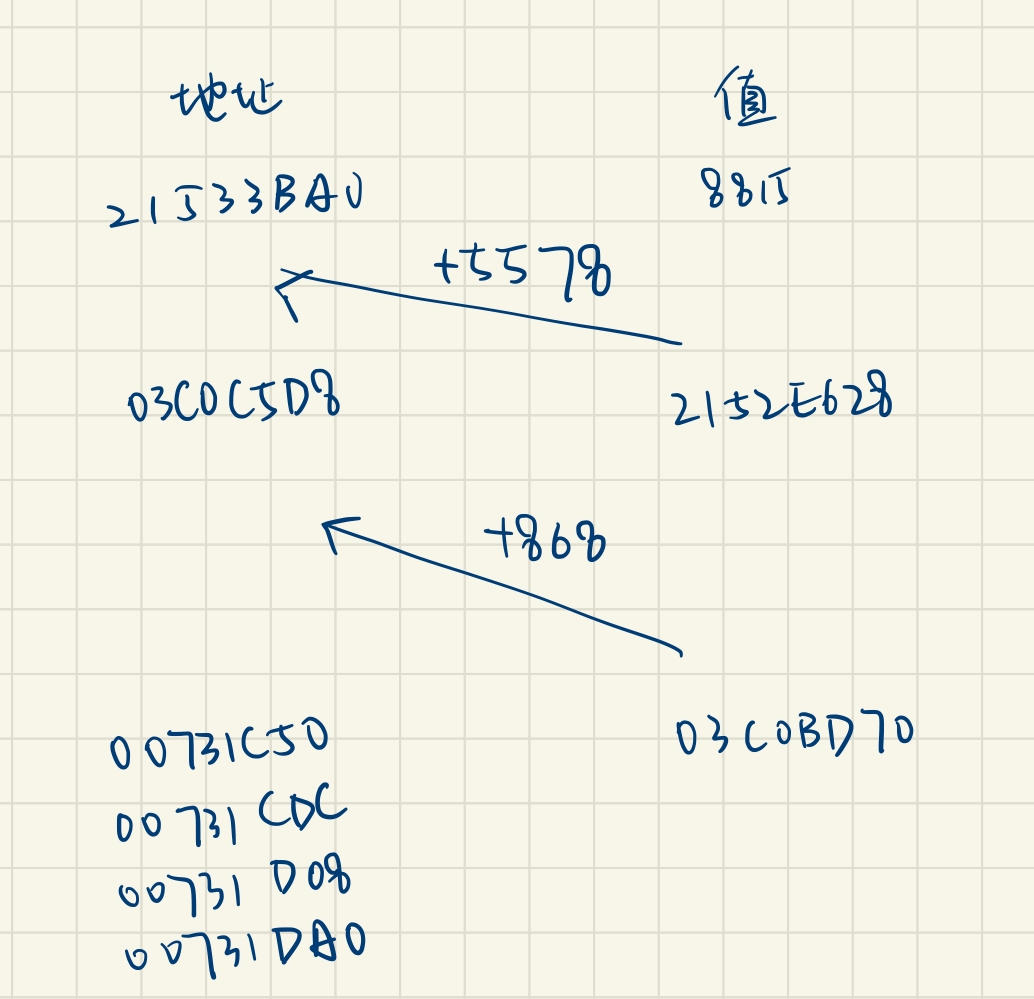 地址 值
21533BA0 8815
+5578
03C0C5D8 2152E628
+868
00731C50 03C0BD70
00731CDC
00731D08
00731DA0